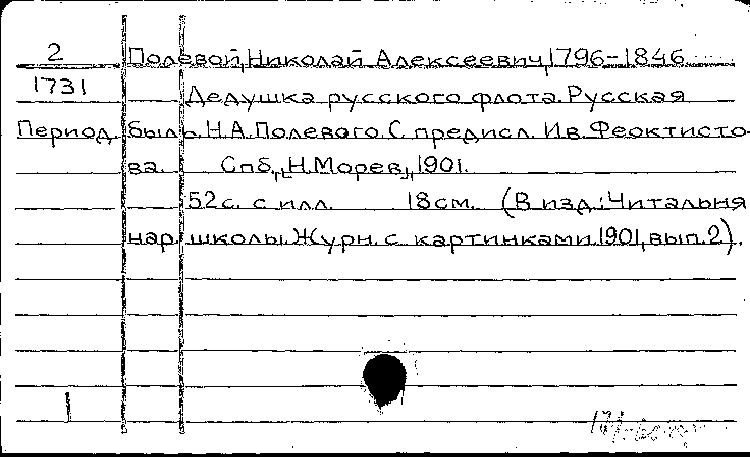 2 Полевой, Николай Алексеевич, 1796-1846
1731 Дедушка русского флота. Русская
Период. быль. Н.А. Полевого. С предисл. Ив. Феоктисто-
ва. Спб., Н. Морев, 1901.
52 с. с илл. 18 см. (В изд.: Читальня
нар. школы. Журн. с картинками. 1901, вып. 2).
1